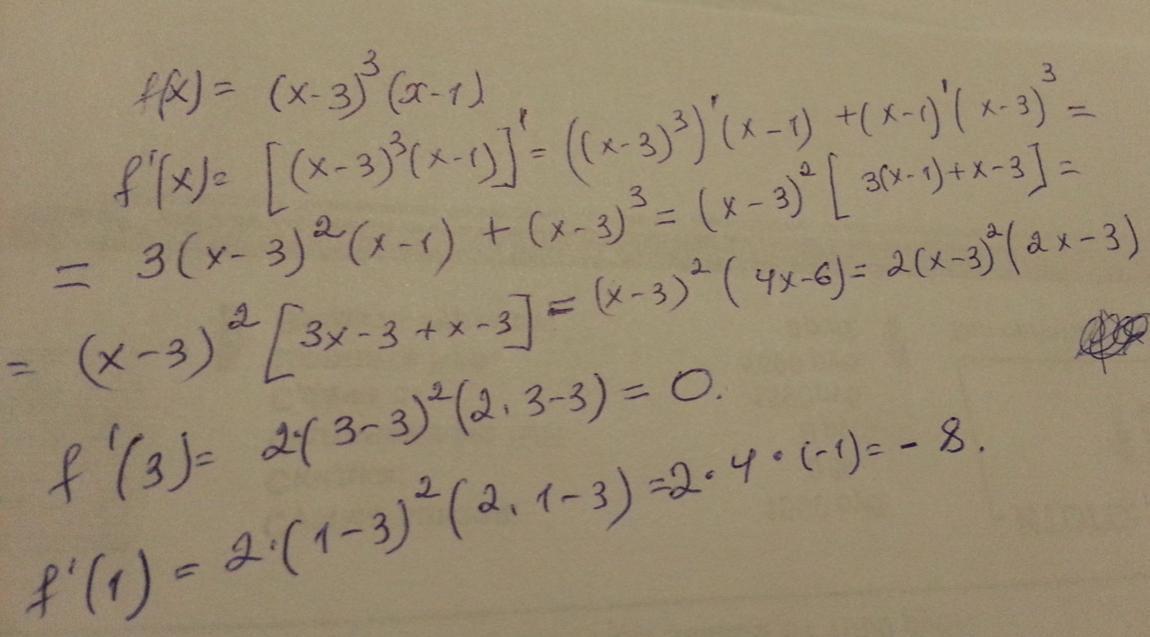 f(x) = (x-3)³(x-1)
f'(x) = [(x-3)³(x-1)]' = ((x-3)³)'(x-1) + (x-1)'(x-3)³ =
= 3(x-3)²(x-1) + (x-3)³ = (x-3)²[3(x-1)+x-3] =
= (x-3)²[3x-3+x-3] = (x-3)²(4x-6) = 2(x-3)²(2x-3)
f'(3) = 2·(3-3)²(2.3-3) = 0.
f'(1) = 2·(1-3)²(2.1-3) = 2·4·(-1) = -8.